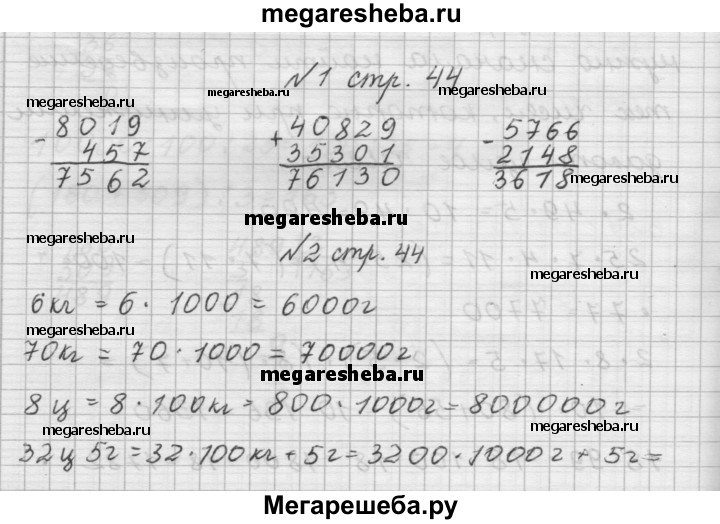 megaresheba.ru
№1 стр. 44
megaresheba.ru megaresheba.ru megaresheba.ru
- 8019 + 40829 - 5766
457 35301 2148
7562 76130 3618 megaresheba.ru
megaresheba.ru
megaresheba.ru №2 стр. 44
6кг = 6 · 1000 = 6000г
megaresheba.ru
70кг = 70 · 1000 = 70000г
megaresheba.ru
8 ц = 8 · 100кг = 800 · 1000г = 800000г
megaresheba.ru megaresheba.ru
32ц 5г = 32 · 100кг + 5г = 3200 · 1000г + 5г =
Мегарешеба.ру